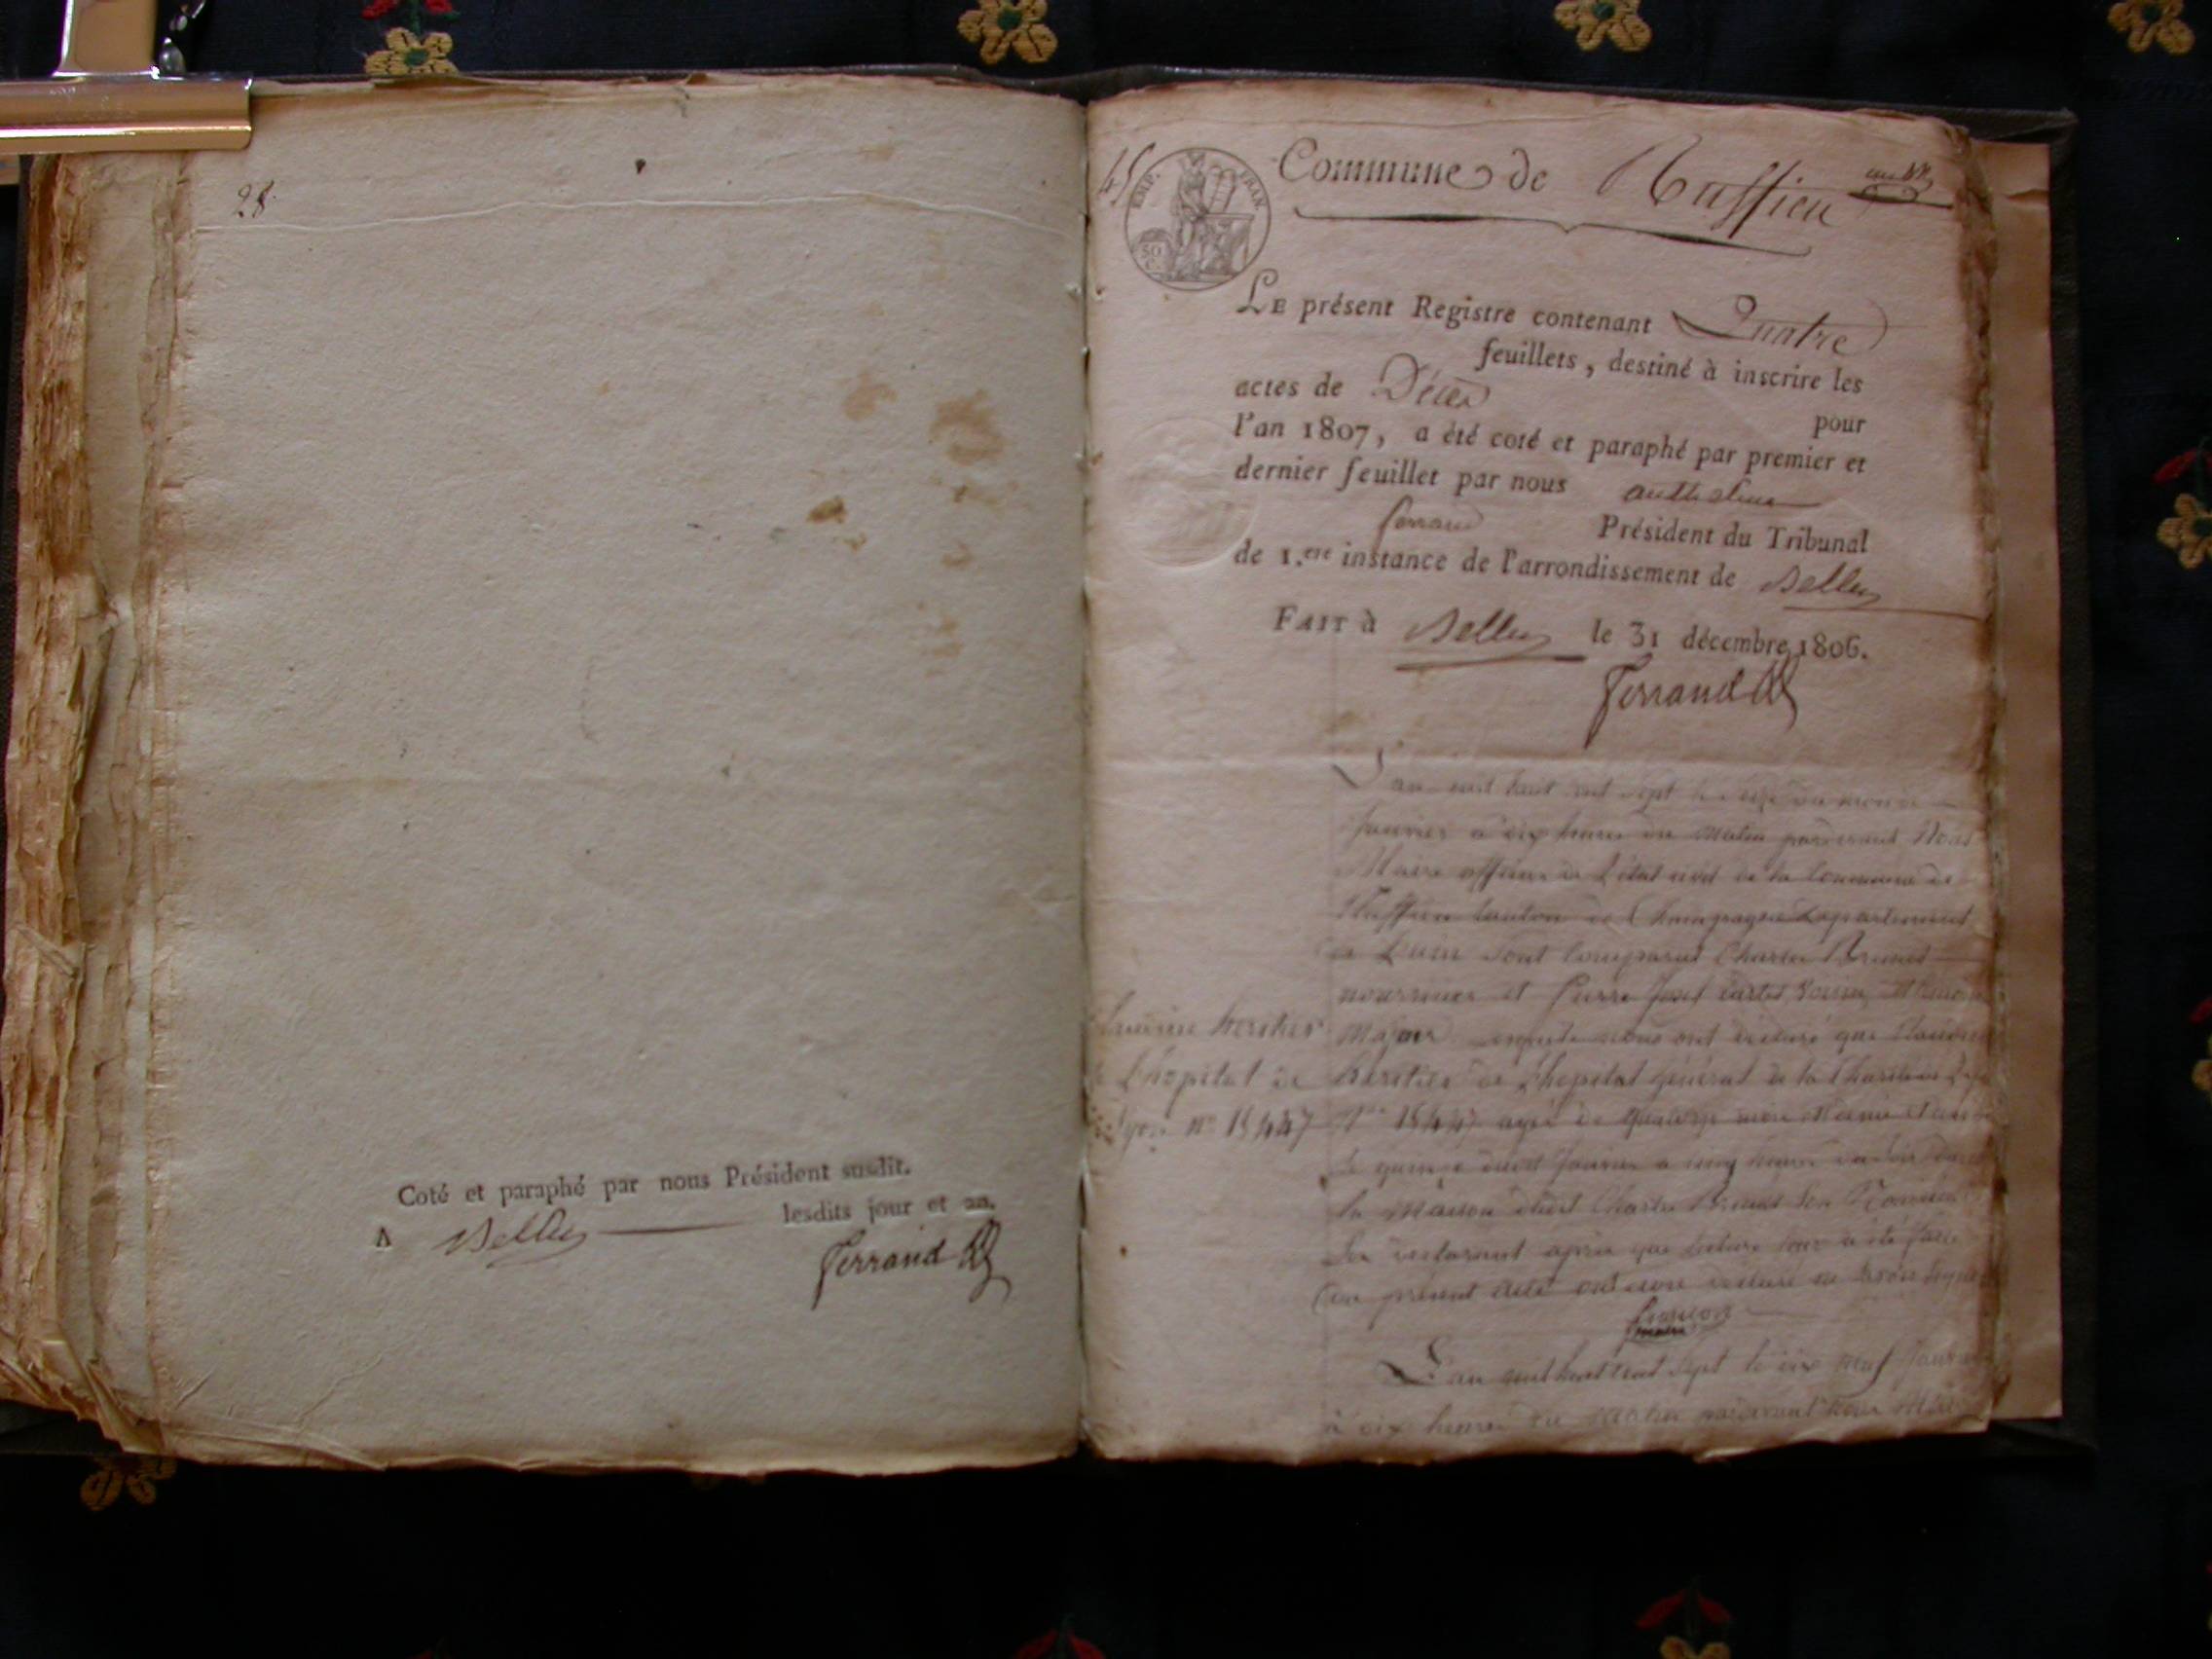 28.
Coté et paraphé par nous Président susdit.
A Belley lesdits jour et an.
Ferrand
45
EMP. FRAN.
50 C.
Commune de Ruffieu
LE présent Registre contenant Quatre
feuillets, destiné à inscrire les
actes de Décès
pour
l'an 1807, a été coté et paraphé par premier et
dernier feuillet par nous anthelme
ferrand Président du Tribunal
de 1.ere instance de l'arrondissement de Belley
FAIT à Belley le 31 décembre 1806.
Ferrand
L'an mil huit cent sept le seize du mois de
Janvier à dix heures du matin pardevant Nous
Maire officier de l'état civil de la Commune de
Ruffieu Canton de Champagne Département
de Lain sont Comparus Charles Brunet
nourricier et pierre Josef
Majeurs lesquels nous ont déclaré que
heritier de L'hopital général de la Charité de
n° 15447 agé de quatorze mois
le quinze dudit Janvier à cinq heures du soir dans
la Maison dudit Charles Brunet son
Les déclarants après que lecture leur a été faite
du présent acte ont declaré ne savoir signer
heritier
L'hopital de
Lyon n° 15447
L'an mil huit cent sept le dix neuf Janvier
à dix heures du matin pardevant nous Maire